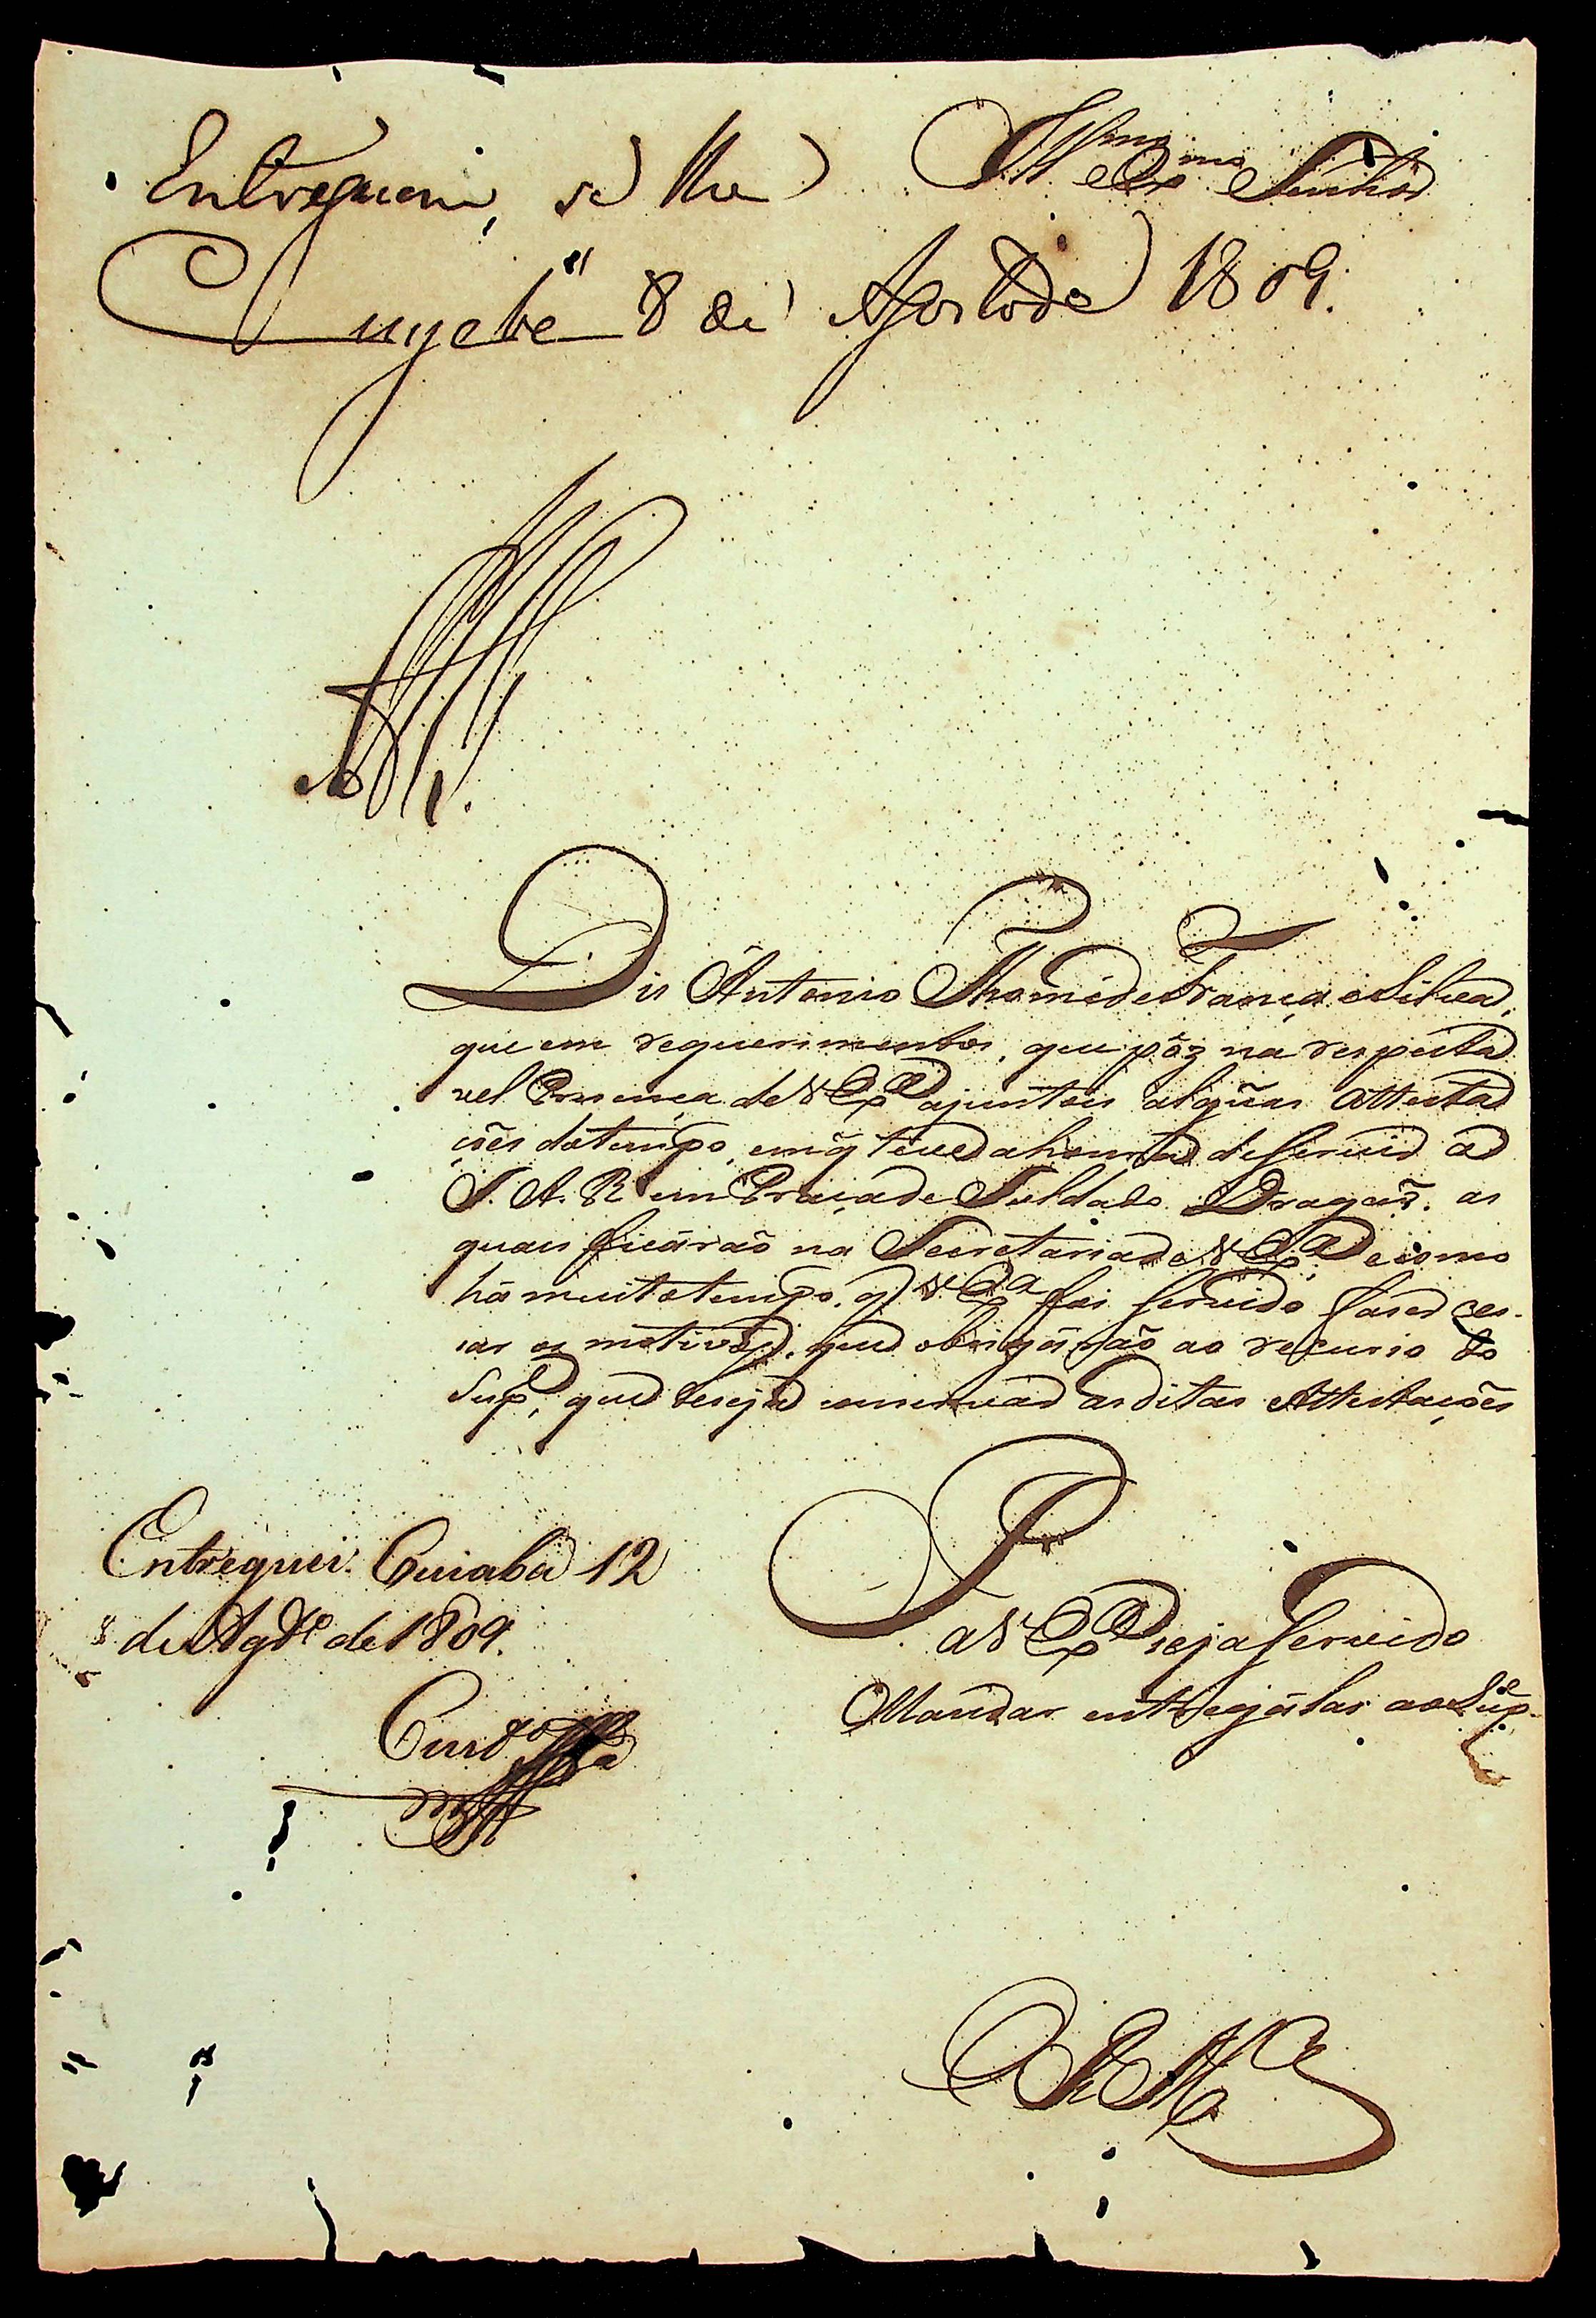 Entreguem, se lhe
Illmo Exmo Senhor
Cuyabá 8 de Agosto de 1809.
Dis Antonio Thome de França e Silva,
que em requerimentos, que pôz na respeita
vel Presença de V Exa ajuntou algũas Attesta
ções do tempo, em q̃ teve a honra de servir a
S. A. R. em Praça de Soldado Dragaõ, as
quais ficáraõ na Secretaria de V Exa, e como
há muito tempo, q̃ V Exa foi servido faser ces-
sar os motivos, que obrigáraõ ao recurso do
Supe, que deseja conservar as ditas Attestações
P
a V Exa seja servido
Mandar entregálas ao Supe
Entreguei. Cuiabá 12
de Agto de 1809.
E R Mce